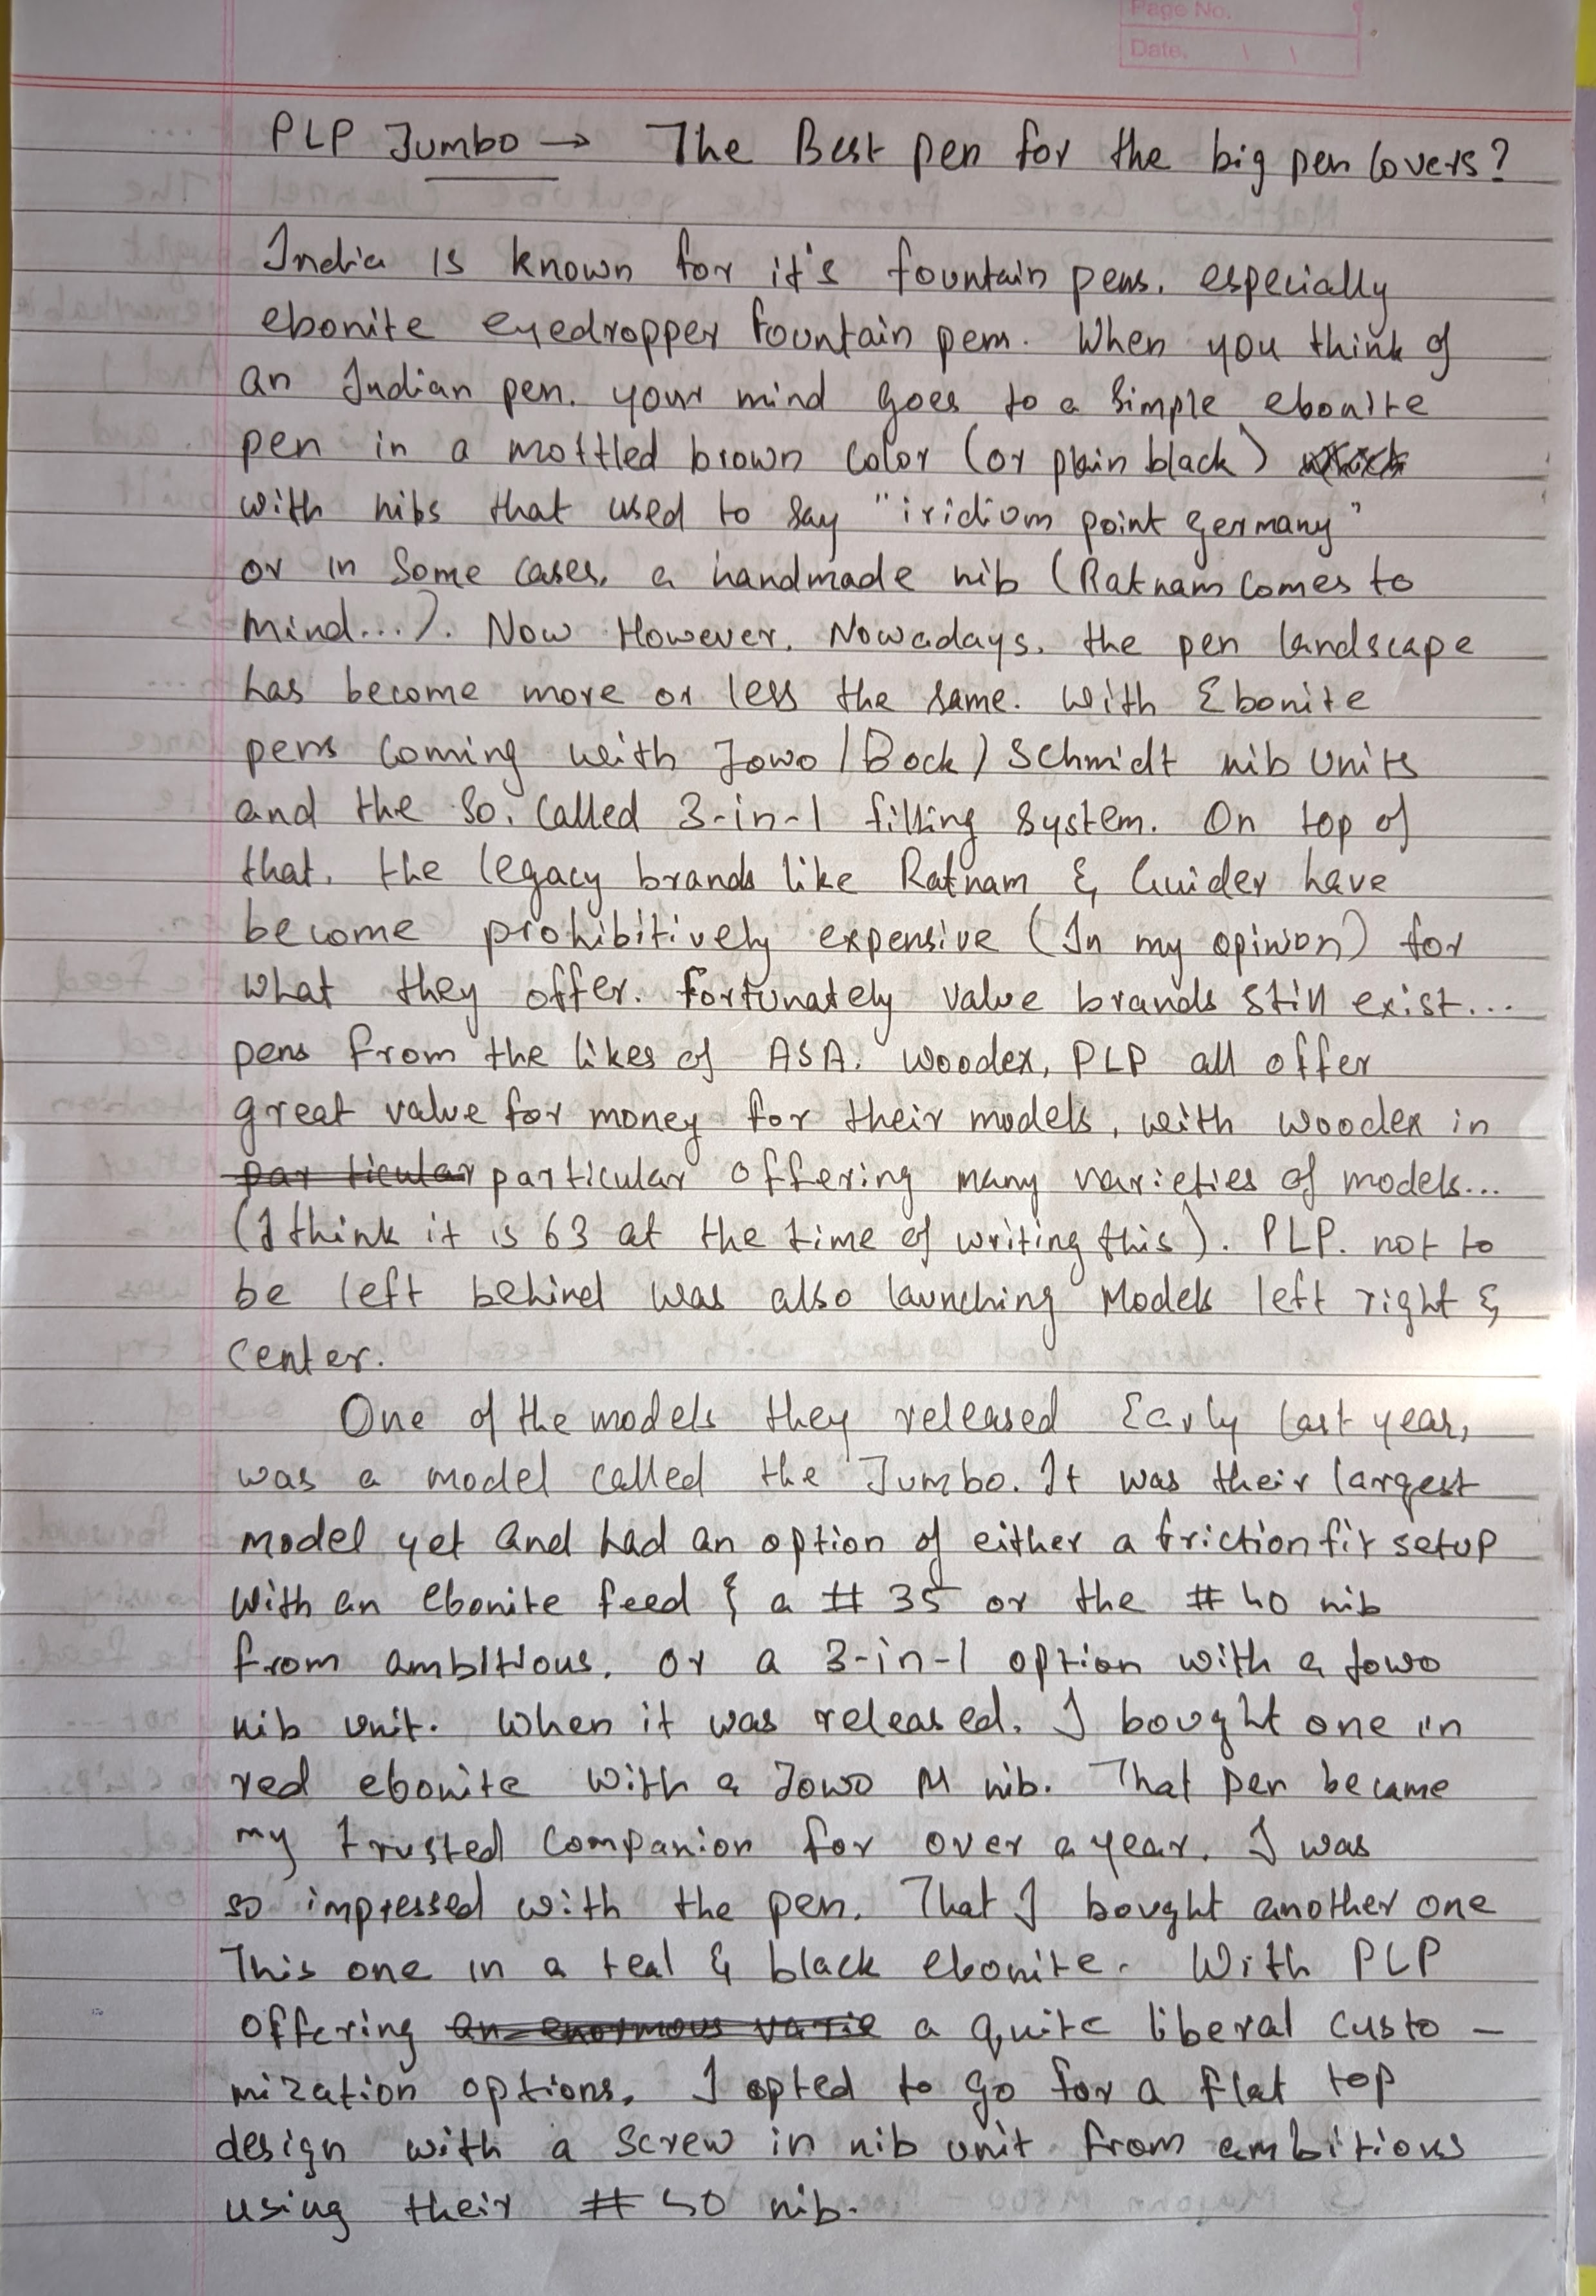 Page No.
Date.
PLP Jumbo → The Best pen for the big pen lovers?
India is known for it's fountain pens. especially
ebonite eyedropper fountain pens. When you think of
an Indian pen. your mind goes to a simple ebonite
pen in a mottled brown color (or plain black)
with nibs that used to say "iridium point germany"
or in some cases, a handmade nib (Ratnam comes to
mind...). Now However. Nowadays. the pen landscape
has become more or less the same. with Ebonite
pens coming with Jowo/Bock/Schmidt nib units
and the so. called 3-in-1 filling system. On top of
that, the legacy brands like Ratnam & Guider have
become prohibitively expensive (In my opinion) for
what they offer. Fortunately value brands still exist...
pens from the likes of ASA. Woodex, PLP all offer
great value for money for their models, with woodex in
par ticular particular offering many varieties of models...
(I think it is 63 at the time of writing this). PLP. not to
be left behind was also launching models left right &
center.
One of the models they released Early last year,
was a model called the Jumbo. It was their largest
model yet and had an option of either a friction fit setup
with an ebonite feed & a # 35 or the # 40 nib
from ambitious. or a 3-in-1 option with a Jowo
nib unit. When it was released. I bought one in
red ebonite with a Jowo M nib. That pen became
my trusted companion for over a year. I was
so impressed with the pen. That I bought another one
This one in a teal & black ebonite. With PLP
offering an enormous varie a quite liberal custo-
mization options, I opted to go for a flat top
design with a screw in nib unit from ambitious
using their # 50 nib.